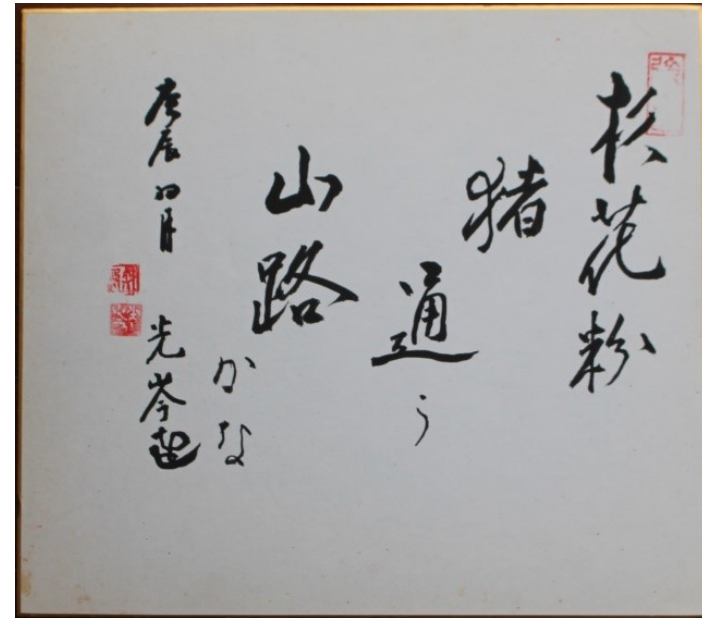 杉花粉
猪
通う
山路
かな
庚辰四月
光岑